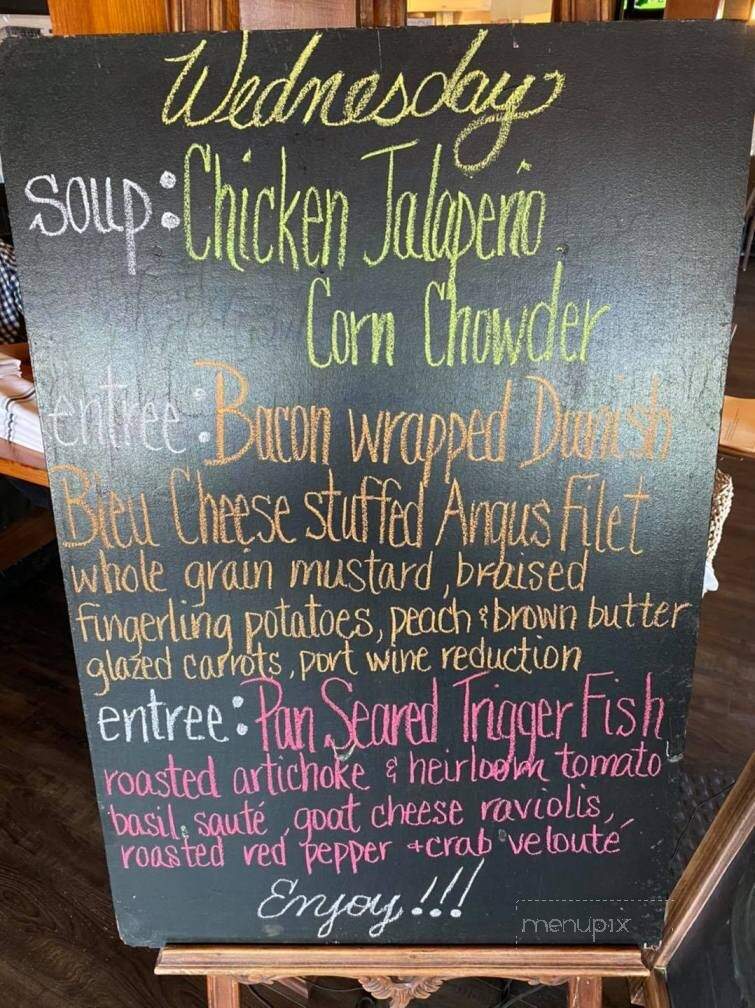 Wednesday
Soup: Chicken Jalapeño
Corn Chowder
entree: Bacon wrapped Danish
Bleu Cheese stuffed Angus Filet
whole grain mustard, braised
fingerling potatoes, peach & brown butter
glazed carrots, port wine reduction
entree: Pan Seared Trigger Fish
roasted artichoke & heirloom tomato
basil sauté, goat cheese raviolis,
roasted red pepper + crab velouté
Enjoy!!!
menupix